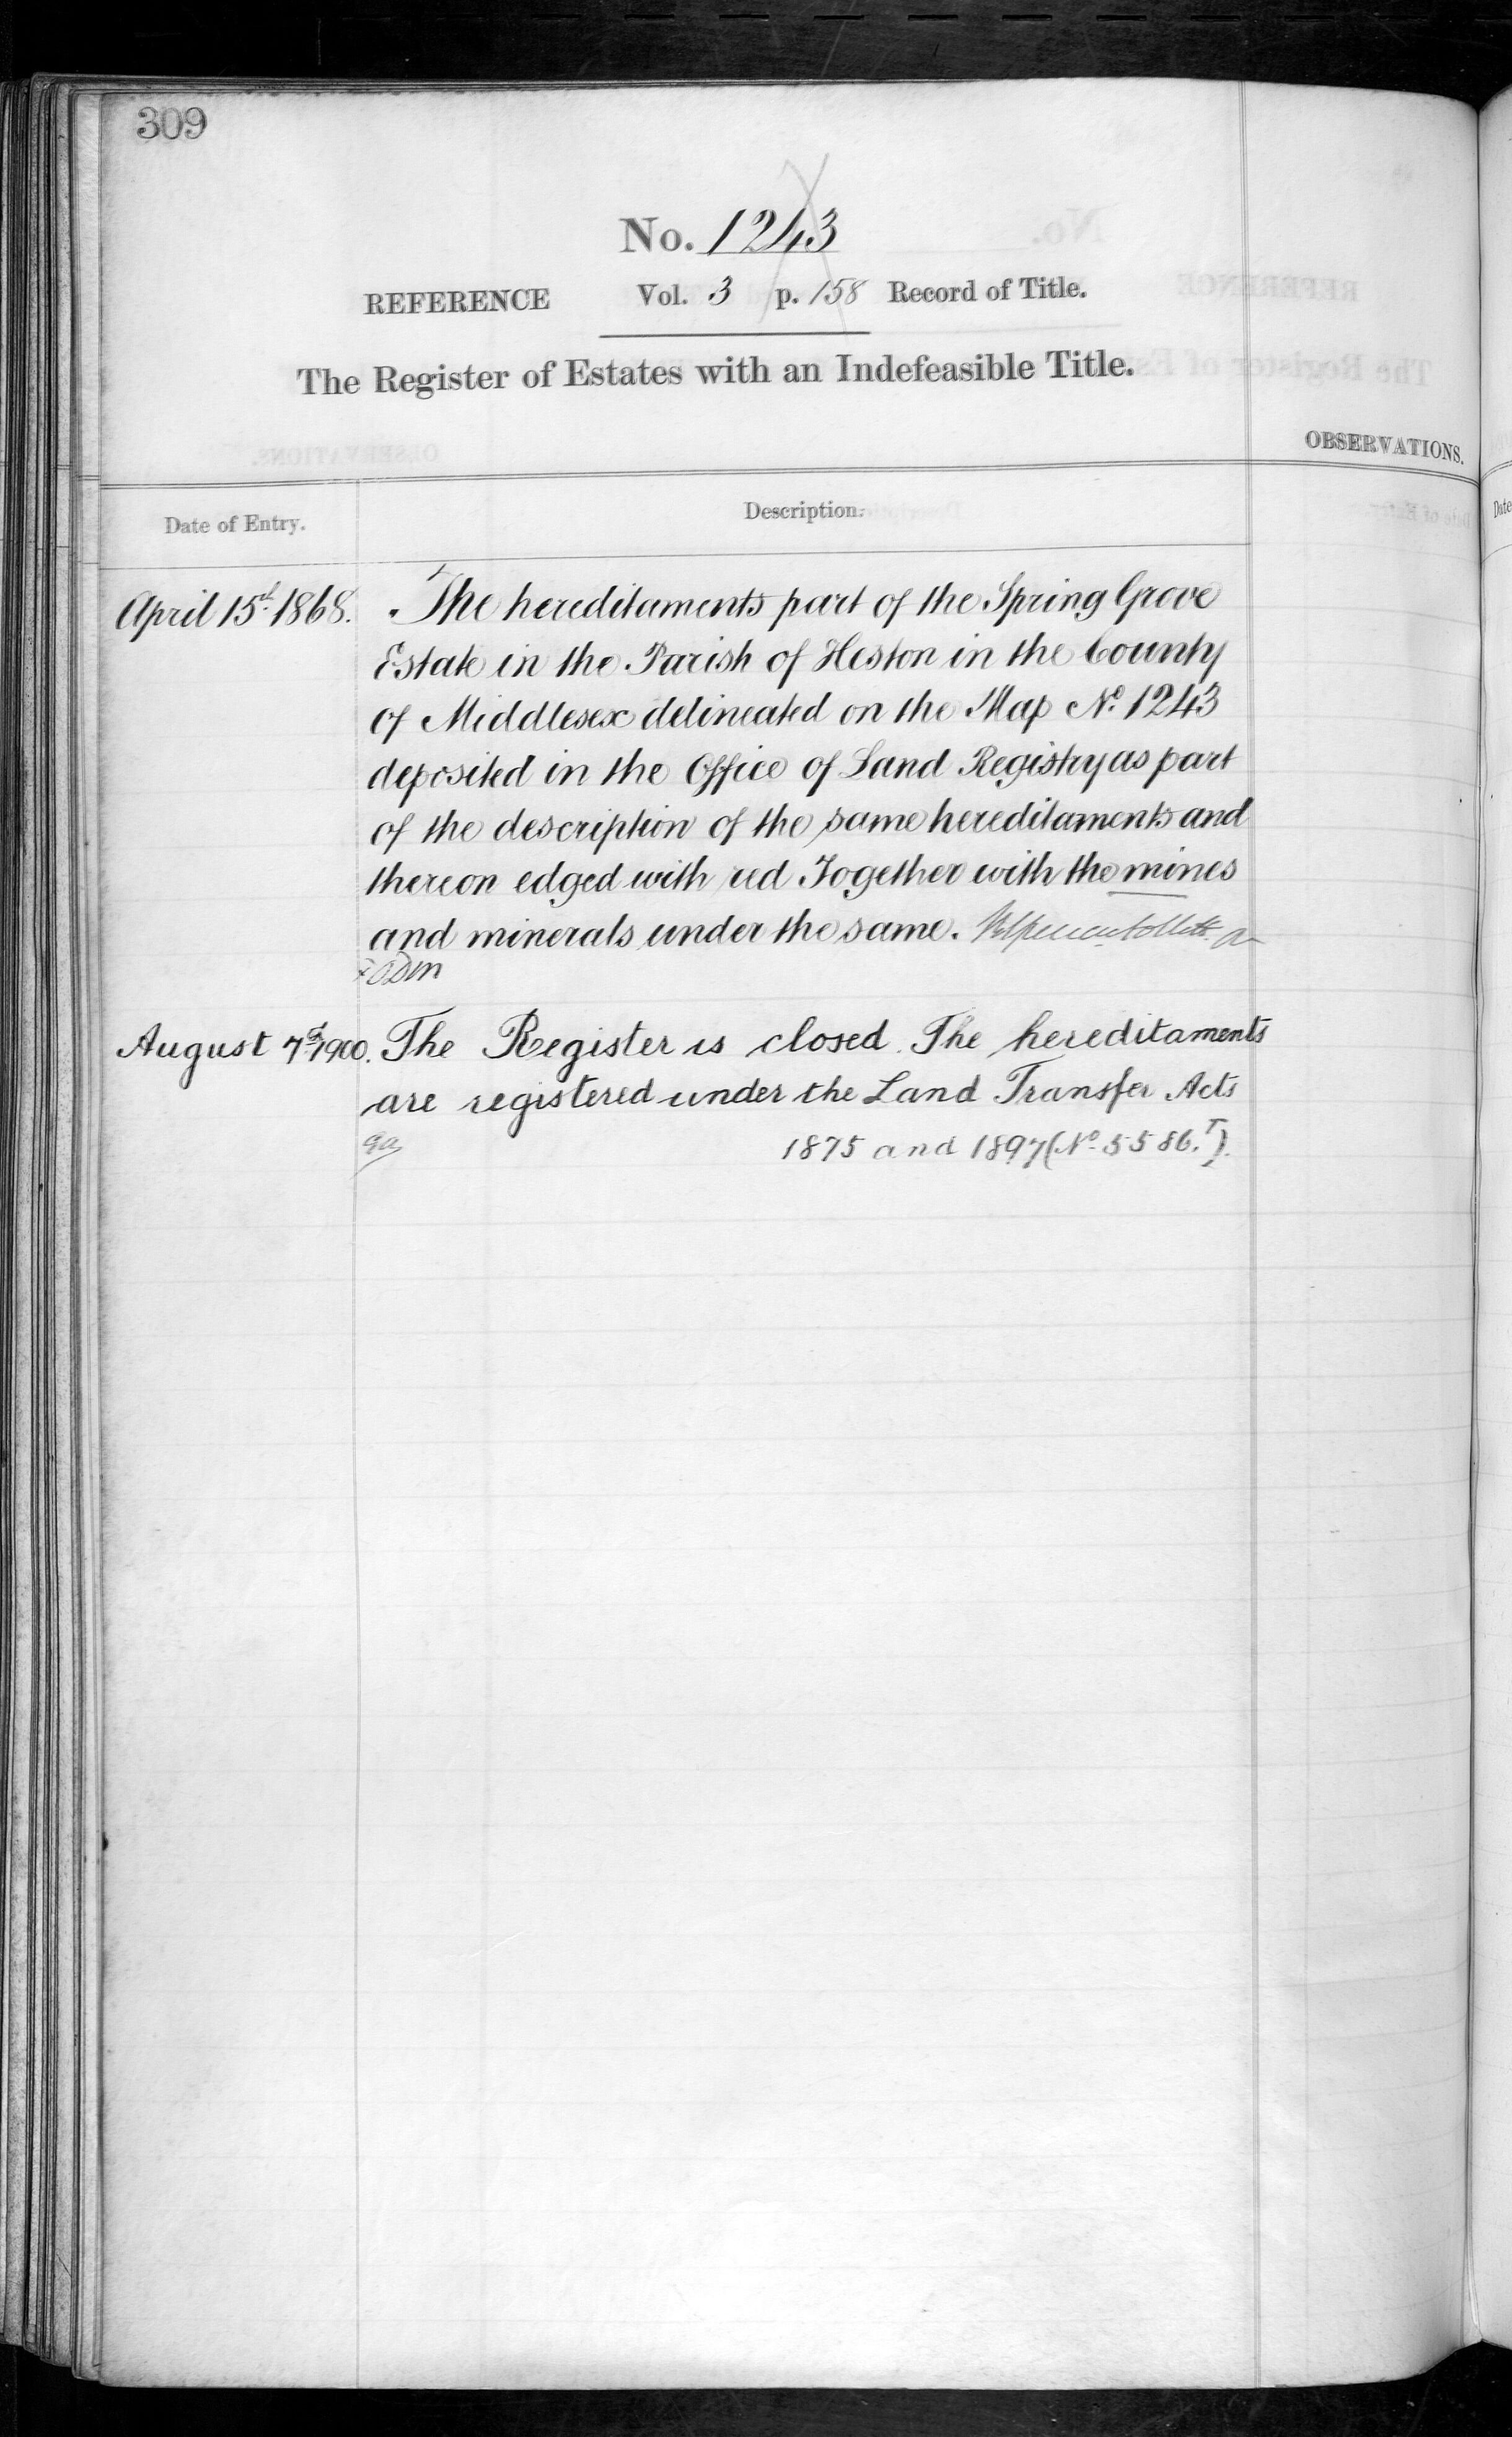 309
No. 1243
REFERENCE Vol. 3 p. 158 Record of Title.
The Register of Estates with an Indefeasible Title.
OBSERVATIONS.
Date of Entry. Description.
April 15th 1868. The hereditaments part of the Spring Grove
Estate in the Parish of Heston in the County
of Middlesex delineated on the Map No. 1243
deposited in the Office of Land Registry as part
of the description of the same hereditaments and
thereon edged with red Together with the mines
and minerals under the same.
August 7th 1900. The Register is closed. The hereditaments
are registered under the Land Transfer Acts
1875 and 1897 (No. 5586.T).